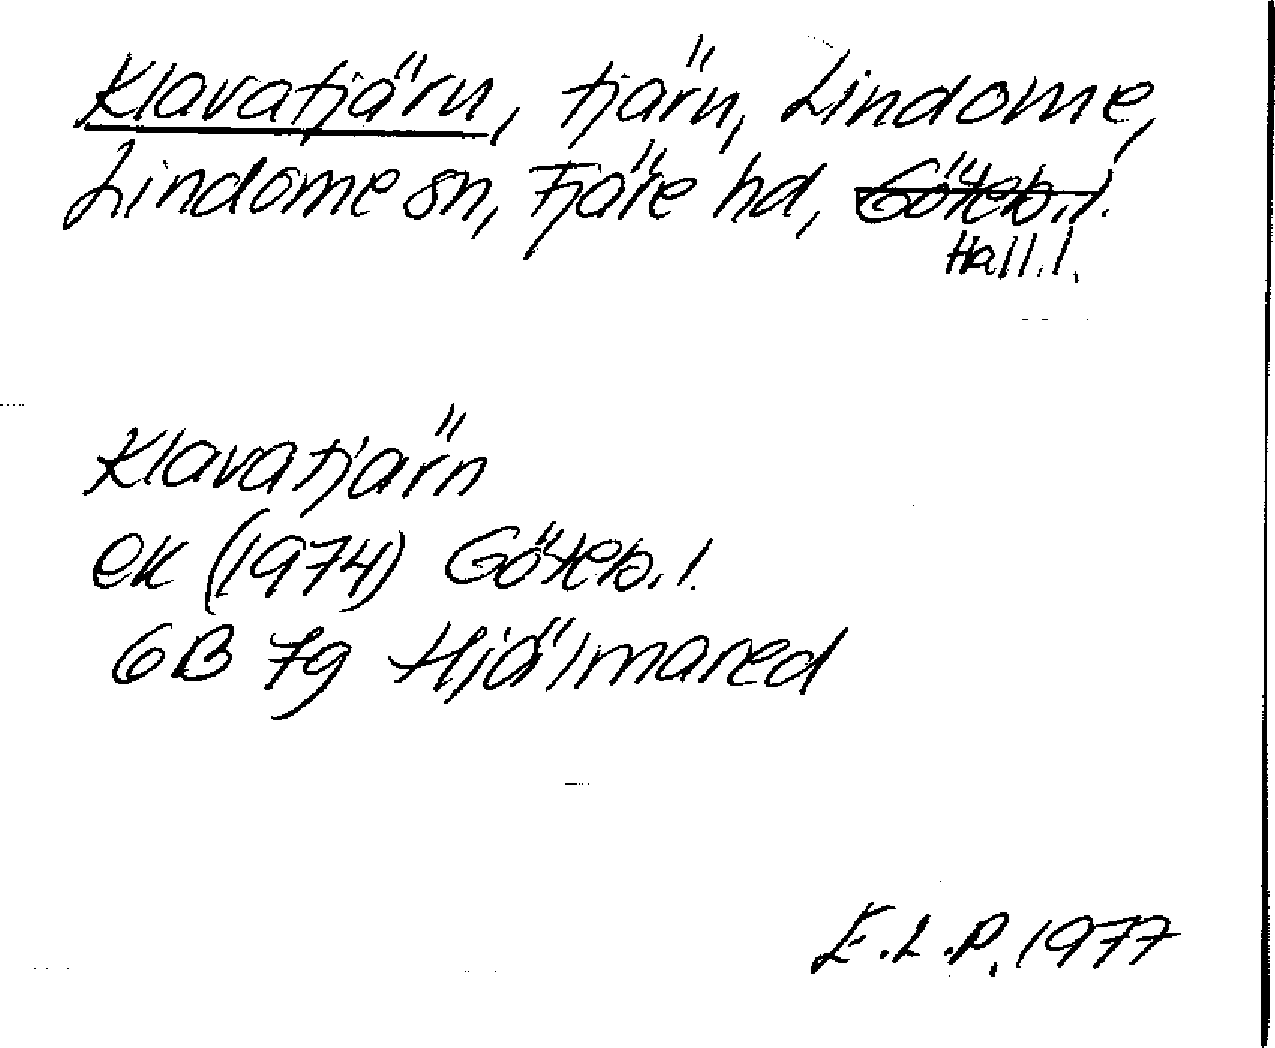 Klavatjärn, tjärn, Lindome,
Lindome sn, Fjäre hd, Göteb. l.
Hall. l.
Klavatjärn
ek (1974) Göteb. l.
6B 7g Hjälmared
E.L.P. 1977